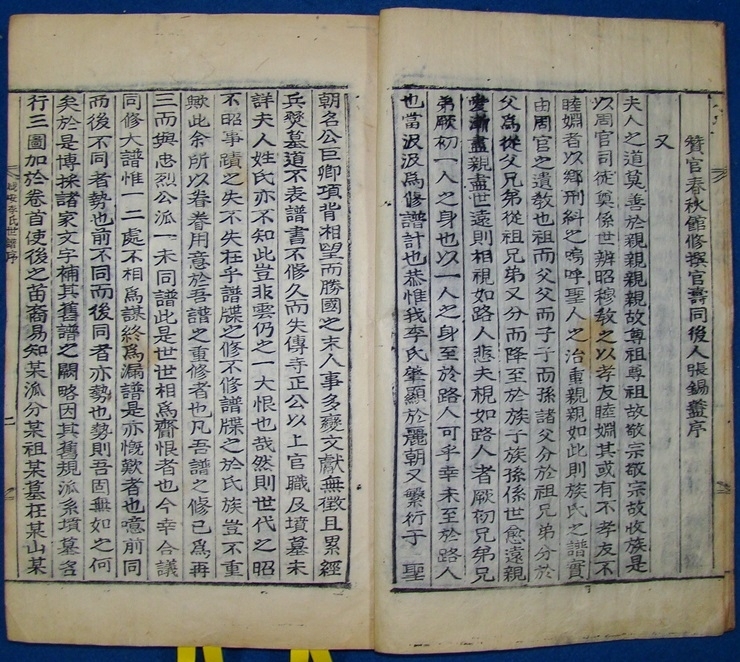 贊官春秋館修撰官壽同後人張錫藎序
又
夫人之道莫善於親親親親故尊祖尊祖故敬宗敬宗故收族是
以周官司徒奠係世辨昭穆敎之以孝友睦婣其或有不孝友不
睦婣者以鄕刑糾之嗚呼聖人之治重親親如此則族氏之譜實
由周官之遺敎也祖而父父而子子而孫諸父分於祖兄弟分於
父爲從父兄弟從祖兄弟又分而降至於族子族孫係世愈遠親
愛漸盡親盡世遠則相視如路人悲夫視如路人者厥初兄弟兄
弟厥初一人之身也以一人之身至於路人可乎幸未至於路人
也當汲汲爲修譜計也恭惟我李氏肇顯於麗朝又繁衍于 聖
朝名公巨卿項背相望而勝國之末人事多變文獻無徵且累經
兵燹墓道不表譜書不修久而失傳寺正公以上官職及墳墓未
詳夫人姓氏亦不知此豈非雲仍之一大恨也哉然則世代之昭
不昭事蹟之失不失在乎譜牒之修不修譜牒之於氏族豈不重
歟此余所以眷眷用意於吾譜之重修者也凡吾譜之修已爲再
三而與忠烈公派一未同譜此是世世相爲齎恨者也今幸合議
同修大譜惟一二處不相爲謀終爲漏譜是亦慨歎者也噫前同
而後不同者勢也前不同而後同者亦勢也勢則吾固無如之何
矣於是博採諸家文字補其舊譜之闕略因其舊規派系墳墓各
行三圖加於卷首使後之苗裔易知某派分某祖某墓在某山某
李氏世譜序
二